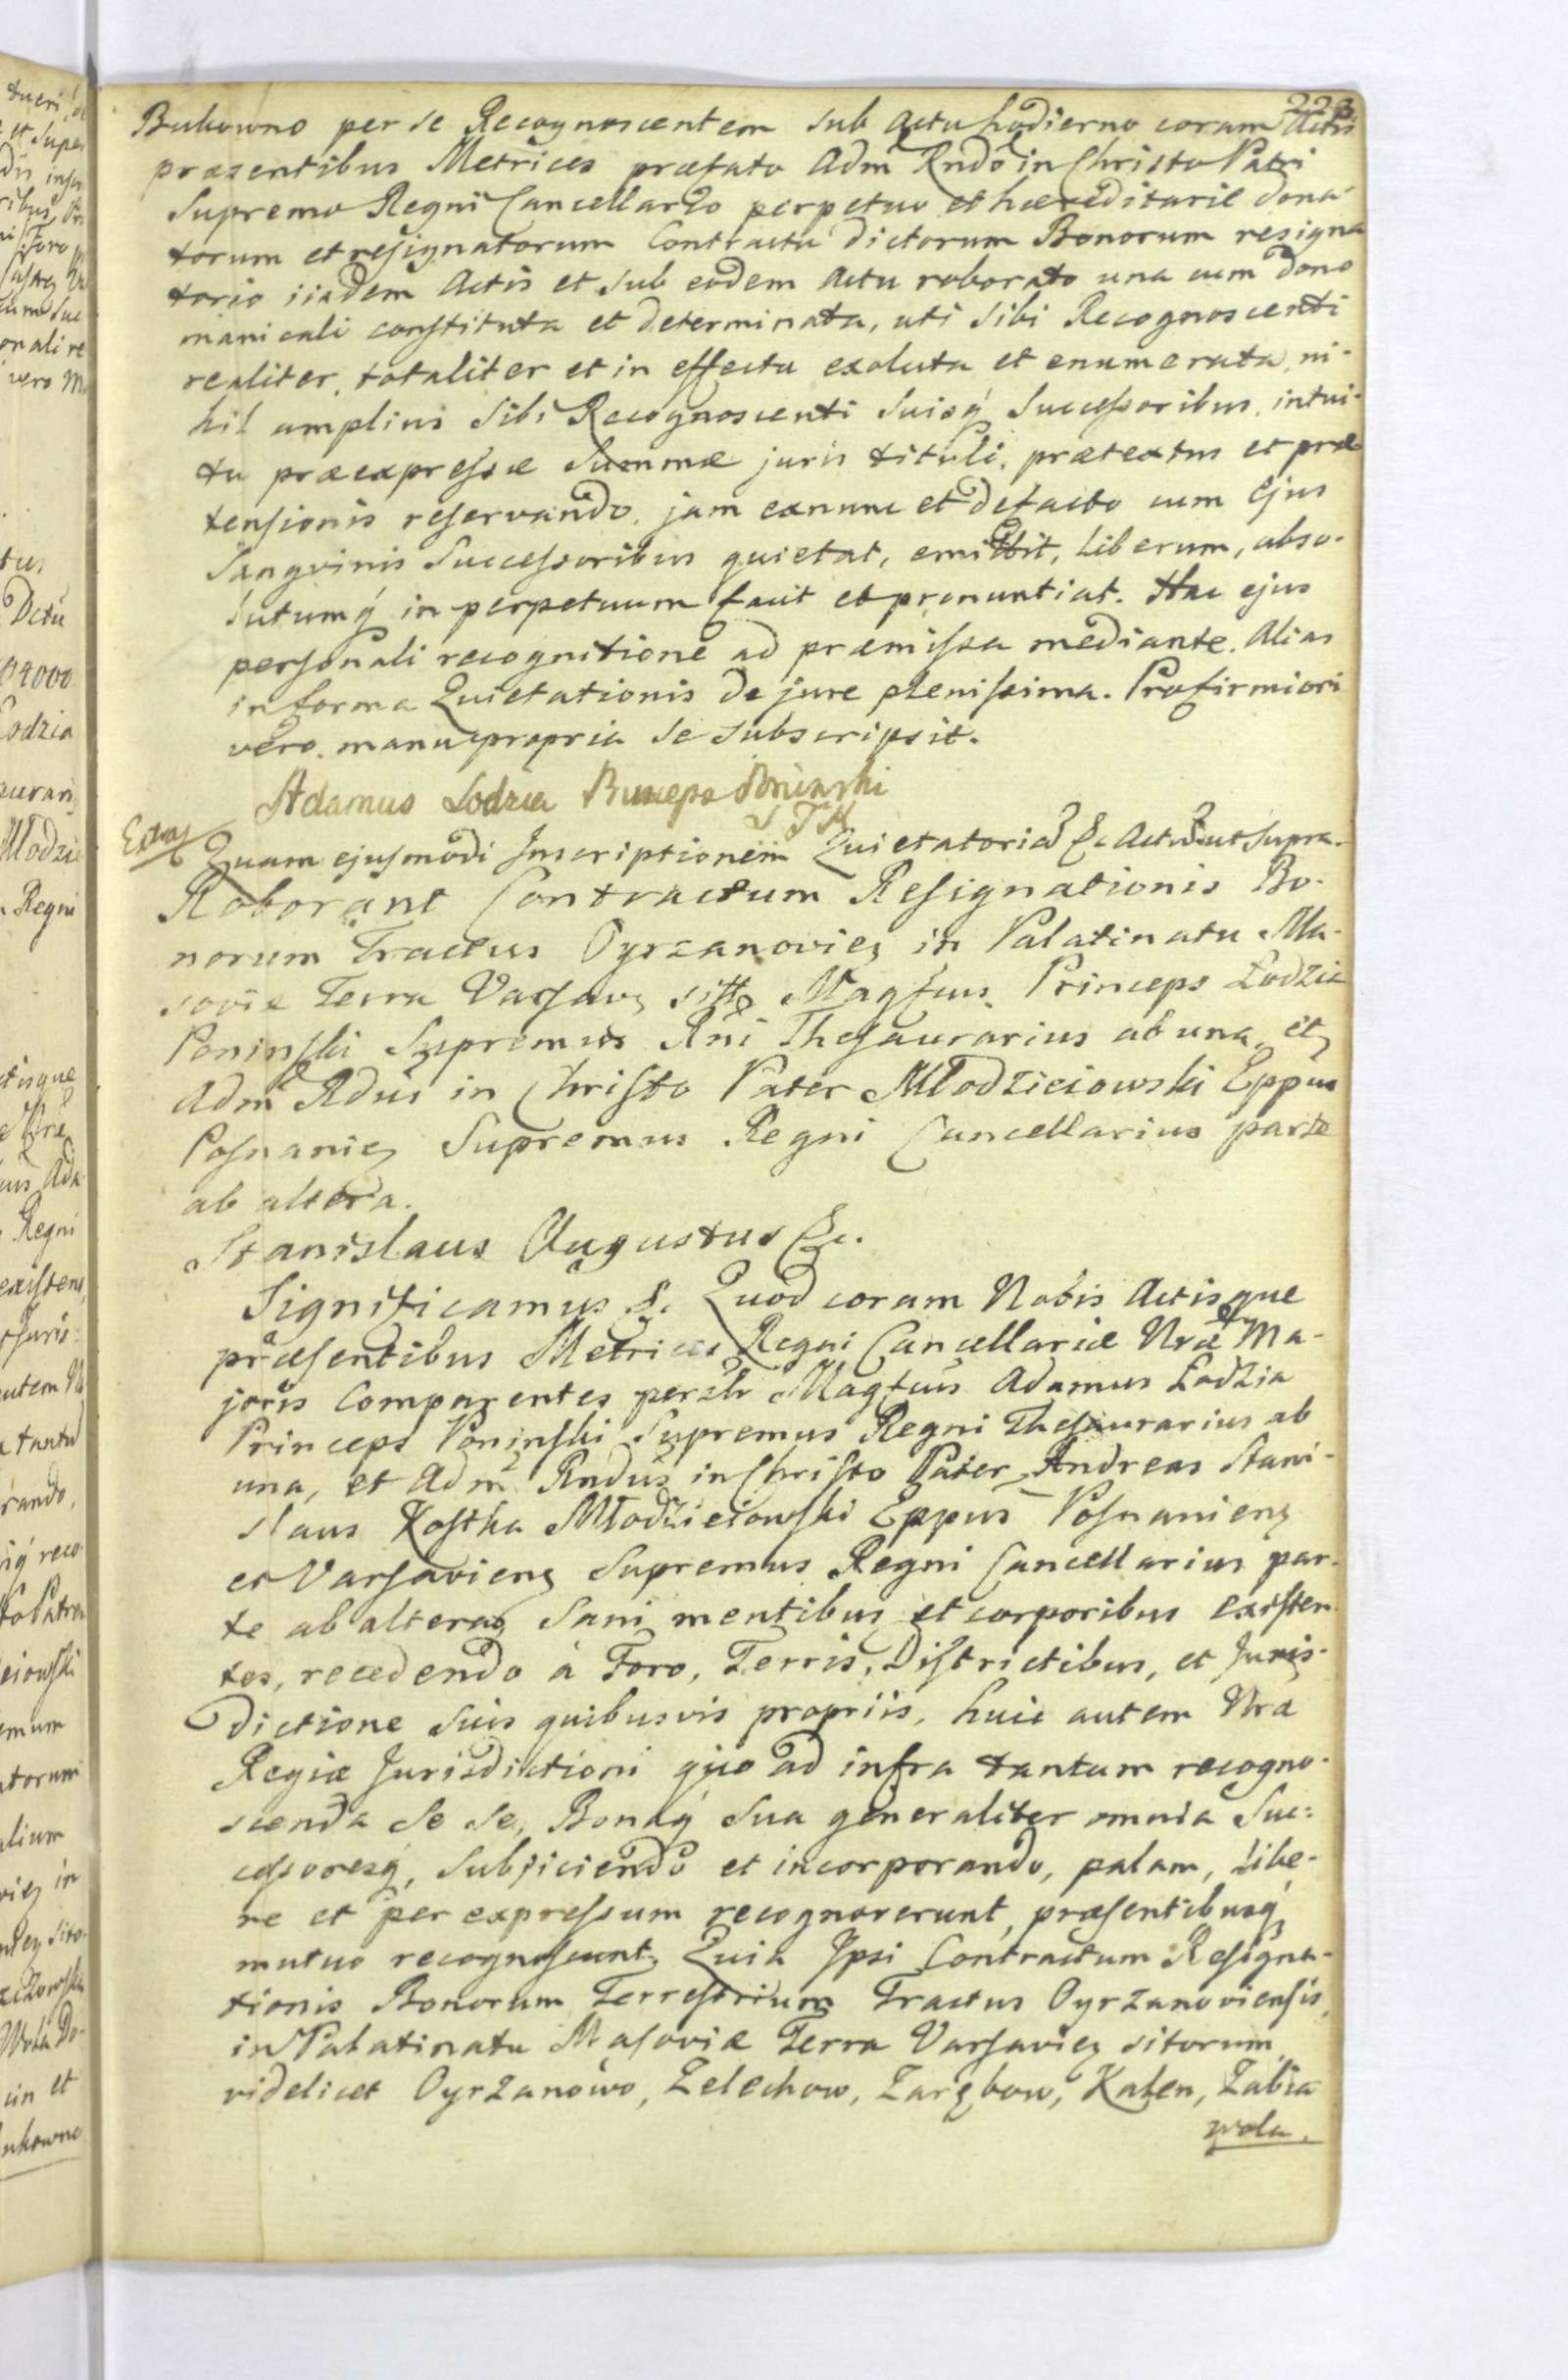 223
Bukowno per se Recognoscentem sub actu hodierno coram Actis
præsentibus Metrices præfato Adm Rndo in Christo Patri
Supremo Regni Cancellario perpetuo et hæreditarie dona
torum et resignatorum Contractu dictorum Bonorum resigna
torio iisdem Actis et sub eodem Actu roborato una cum dono
manicali constituta et determinata, uti sibi Recognoscenti
realiter, totaliter et in effectu exoluta et enumerata, ni-
hil amplius sibi Recognoscenti Suisq́ Successoribus, intui-
tu præexpressæ Summæ juris tituli, prætextus et præ
tensionis reservando, jam exnunc et defacto cum Ejus
Sangvinis Successoribus quietat, emittit, liberum, abso-
lutumq́ in perpetuum facit et pronuntiat. Hac ejus
personali recognitione ad præmissa mediante. Alias
in forma Quietationis de jure plenissima. Pro firmiori
vero manu propria se subscripsit.
Adamus Lodzia Princeps Poninski
S T R
Quam ejusmodi Inscriptionem Quietatoria &c Actu ut supra.
Roborant Contractum Resignationis Bo-
norum Tractus Oyrzanovien in Palatinatu Ma-
soviæ Terra Varsavien Magfcus Princeps Łodzia
Poninski Supremus Rni Thesaurarius ab una et
Adm Rdus in Christo Pater Młodzieiowski Eppus
Posnanien Supremus Regni Cancellarius parte
ab altera.
Stanislaus Augustus &c.
Significamus &c. Quod coram Nobis Actisque
præsentibus Metrices Regni Cancellariæ Nræ Ma-
joris Comparentes personaliter Magfcus Adamus Łodzia
Princeps Poninski Supremus Regni Thesaurarius ab
una, et Adm Rndus in Christo Pater Andreas Stani-
slaus Kostka Młodzieiowski Eppus Posnaniens
et Varsaviens Supremus Regni Cancellarius par-
te ab altera, Sani mentibus et corporibus existen-
tes, recedendo à Foro, Terris, Districtibus, et Juris-
dictione suis quibusvis propriis, huic autem Nræ
Regiæ Jurisdictioni quo ad infra tantum recogno-
scenda se se, Bonaq́ sua generaliter omnia Suc-
cessoresq́, subjiciendo et incorporando, palam, libe-
re et per expressum recognoverunt, præsentibusq́
mutuo recognoscunt, Quia Ipsi Contractum Resigna-
tionis Bonorum Terrestrium Tractus Oyrzanoviensis,
in Palatinatu Masoviæ Terra Varsavien sitorum
videlicet Oyrzanowo, Zelechow, Zarębow, Kalen, Zabia
wola.